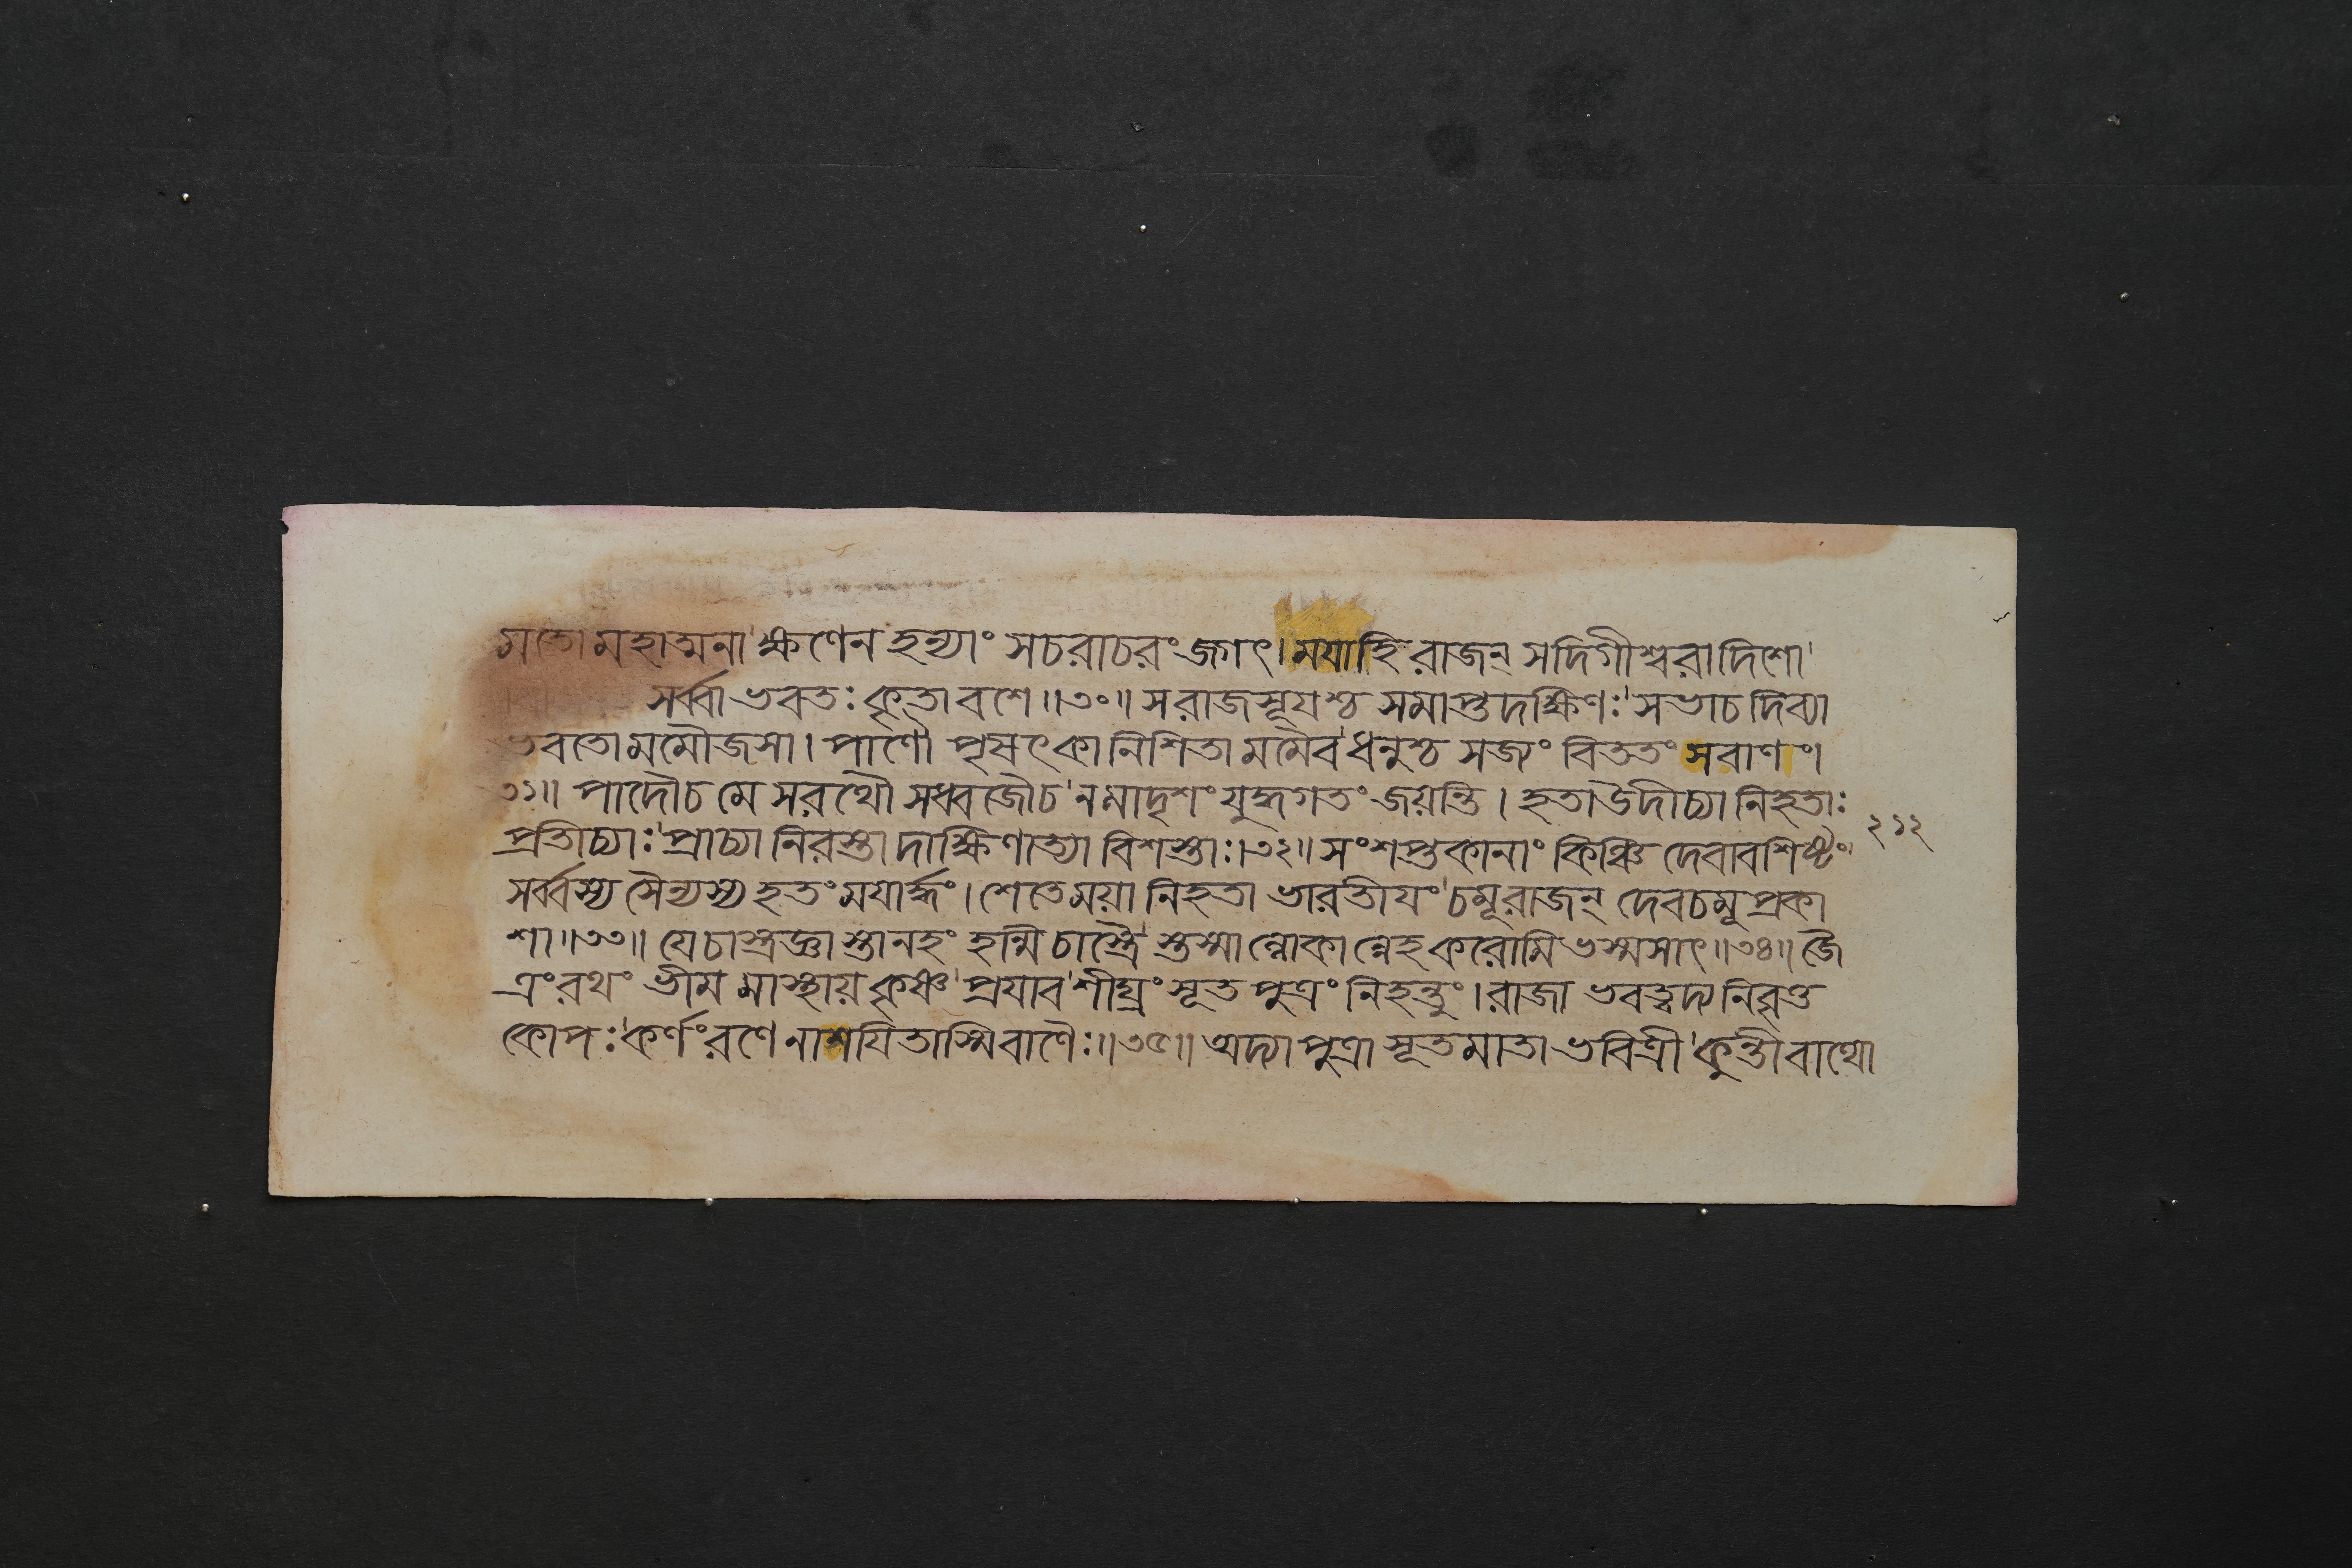 মতো মহাত্মনা ক্ষণেন হন্যাং সচরাচরং জগৎ। ময়া হি রাজন্ সদিগীশ্বরা দিশো
সর্ব্বা ভবতঃ কৃতা বশে॥৩০॥ স রাজসূয়শ্চ সমাপ্তদক্ষিণঃ সভা চ দিব্যা
ভবতো মমৌজসা। পাণৌ পৃষৎকা নিশিতা মমৈব ধনুশ্চ সজ্যং বিততং সবাণং।
৩১॥ পাদৌ চ মে সরথৌ সধ্বজৌ চ ন মাদৃশং যুদ্ধগতং জয়ন্তি। হতা উদীচ্যা নিহতাঃ
প্রতীচ্যাঃ প্রাচ্যা নিরস্তা দাক্ষিণাত্যা বিশস্তাঃ।৩২॥ সংশপ্তকানাং কিঞ্চিদেবাবশিষ্টং
সর্ব্বস্য সৈন্যস্য হতং ময়ার্দ্ধং। শেতে ময়া নিহতা ভারতীয়ং চমূ রাজন্ দেবচমূপ্রকা
শা॥৩৩॥ যে চাস্ত্রজ্ঞাস্তানহং হন্মি চাস্ত্রৈস্তস্মাল্লোকান্নেহ করোমি ভস্মসাৎ॥৩৪॥ জৈ
ত্রং রথং ভীমমাস্থায় কৃষ্ণ প্রয়াব শীঘ্রং সূতপুত্রং নিহন্তুং। রাজা ভবত্বদ্য নিবৃত্ত
কোপঃ কর্ণং রণে নাশয়িতাস্মি বাণৈঃ॥৩৫॥ অদ্যাপুত্রা সূতমাতা ভবিত্রী কুন্তী বাথো
২১২